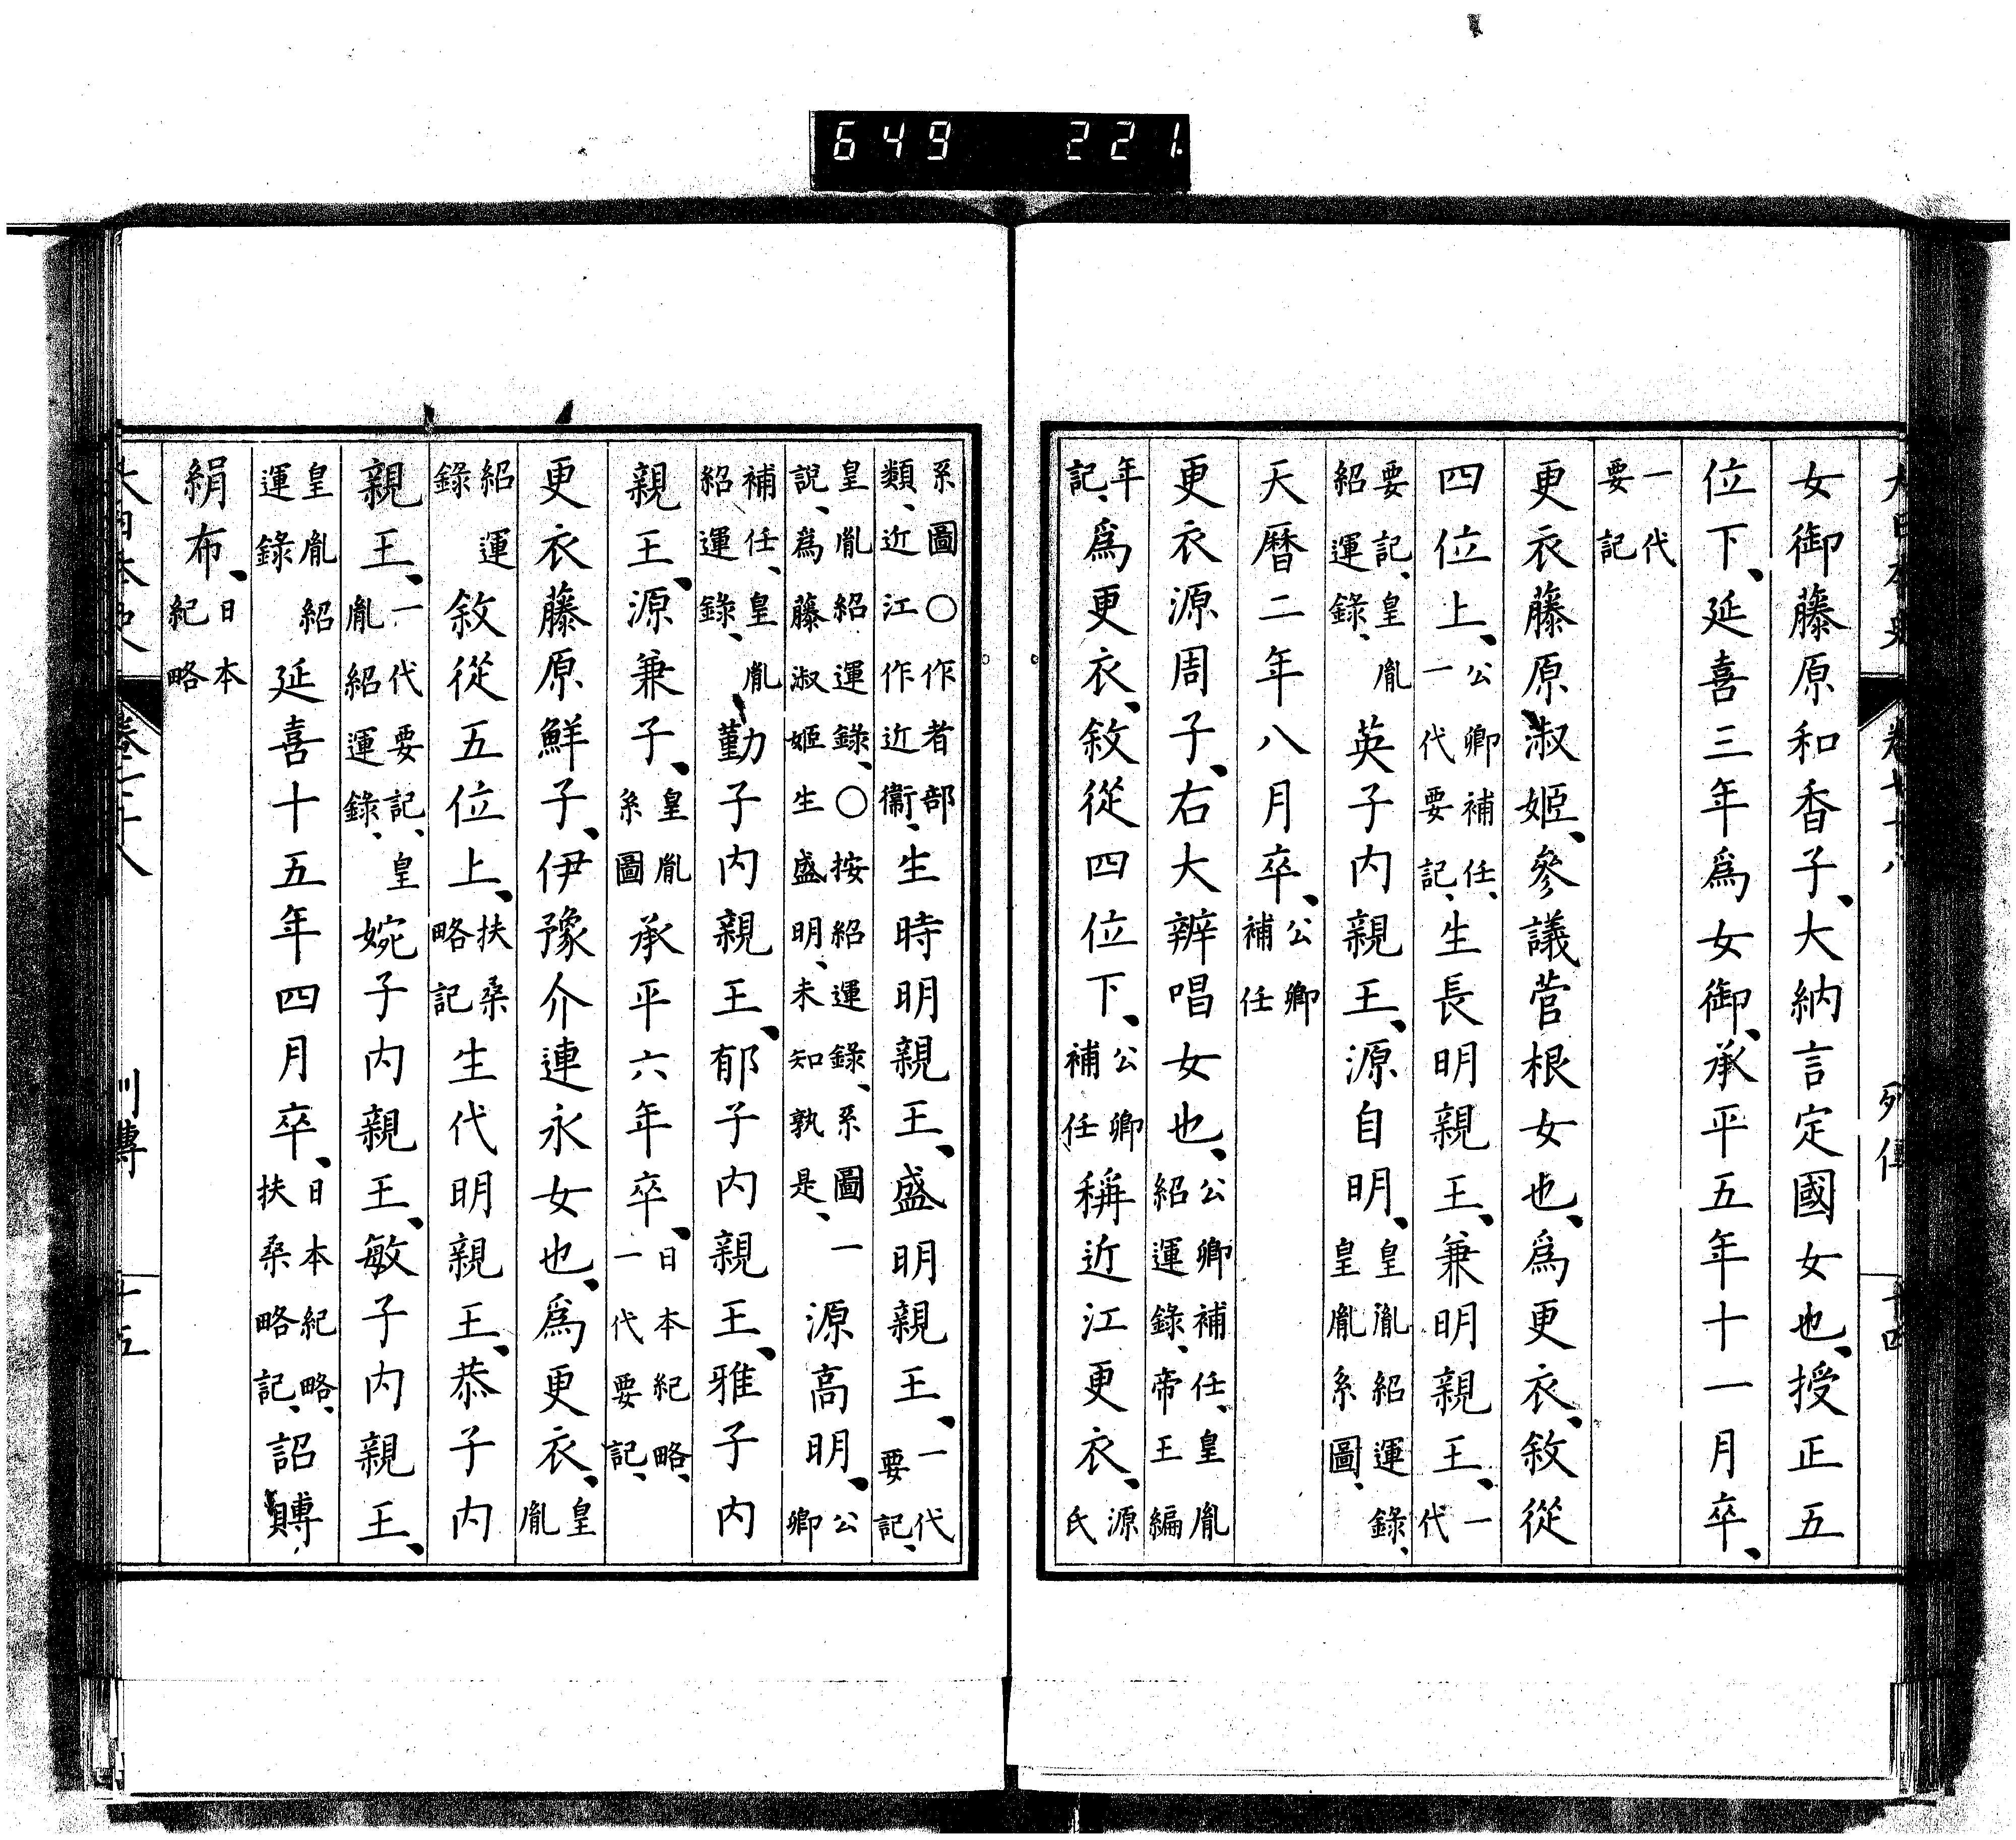 649 221.
女御藤原和香子、大納言定國女也、授正五
位下、延喜三年爲女御、承平五年十一月卒、
一代要記
更衣藤原淑姬、參議菅根女也、爲更衣、敘從
四位上、公卿補任、一代要記、生長明親王、兼明親王、一代
要記、皇胤紹運錄、英子內親王、源自明、皇胤紹運錄、皇胤系圖、
天曆二年八月卒、公卿補任
更衣源周子、右大辨唱女也、公卿補任、皇胤紹運錄、帝王編
年記、爲更衣、敘從四位下、公卿補任稱近江更衣、源氏
系圖○作者部類、近江作近衞、生時明親王、盛明親王、一代要記、
皇胤紹運錄、○按紹運錄、系圖一說、爲藤淑姬生盛明、未知孰是、源高明、公卿
補任、皇胤紹運錄、勤子內親王、郁子內親王、雅子內
親王、源兼子、皇胤系圖承平六年卒、日本紀略、一代要記、
更衣藤原鮮子、伊豫介連永女也、爲更衣、皇胤
紹運錄敘從五位上、扶桑略記生代明親王、恭子內
親王、一代要記、皇胤紹運錄、婉子內親王、敏子內親王、
皇胤紹運錄延喜十五年四月卒、日本紀略、扶桑略記、詔賻
絹布、日本紀略